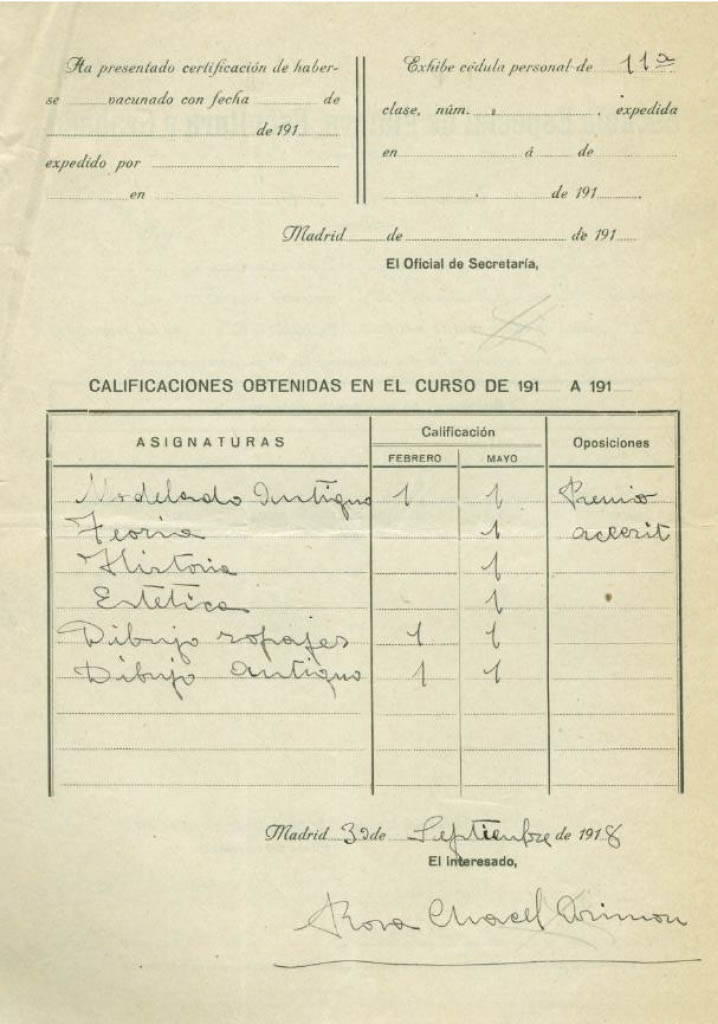 Ha presentado certificación de haber-
se vacunado con fecha de
de 191
expedido por
en
Exhibe cédula personal de 11ª
clase, núm. , expedida
en á de
de 191
Madrid de de 191
El Oficial de Secretaría,
CALIFICACIONES OBTENIDAS EN EL CURSO DE 191 A 191
ASIGNATURAS Calificación Oposiciones
FEBRERO MAYO
Modelado Antiguo 1 1 Premio
Teoria 1 accerit
Historia 1
Estética 1
Dibujo ropajes 1 1
Dibujo antiguo 1 1
Madrid 30 de Septiembre de 1918
El interesado,
Rosa Chacel Arimon